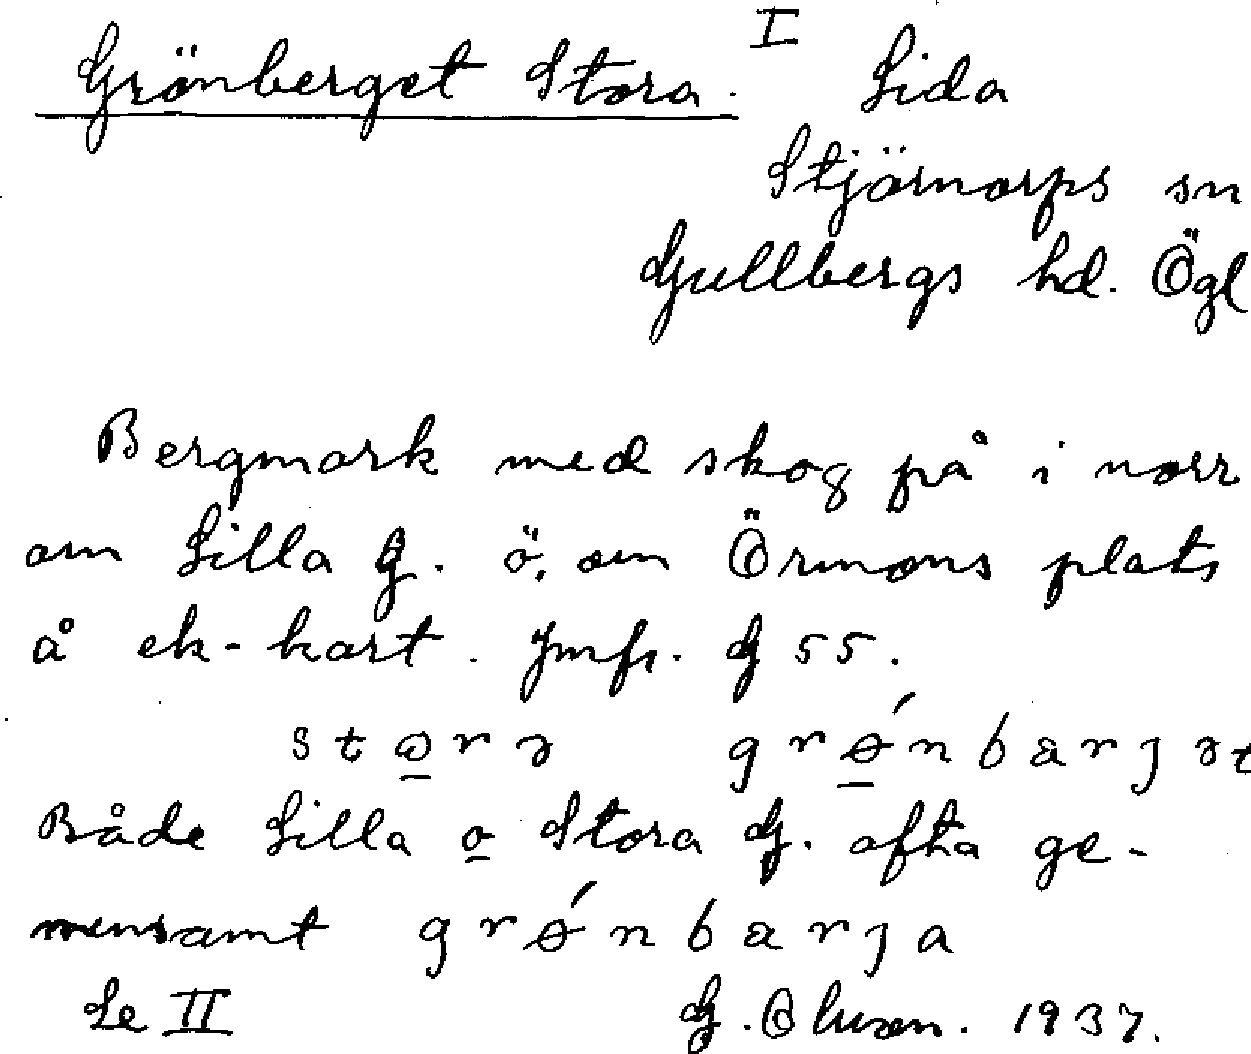 Grönberget Stora. I Lida
Stjärnorps sn
Gullbergs hd. Ögl
Bergmark med skog på i norr
om Lilla G. ö. om Örmons plats
å ek-kart. Jmfr. G 55.
Både Lilla o Stora G. ofta ge-
mensamt
Se II G. Olsson. 1937.